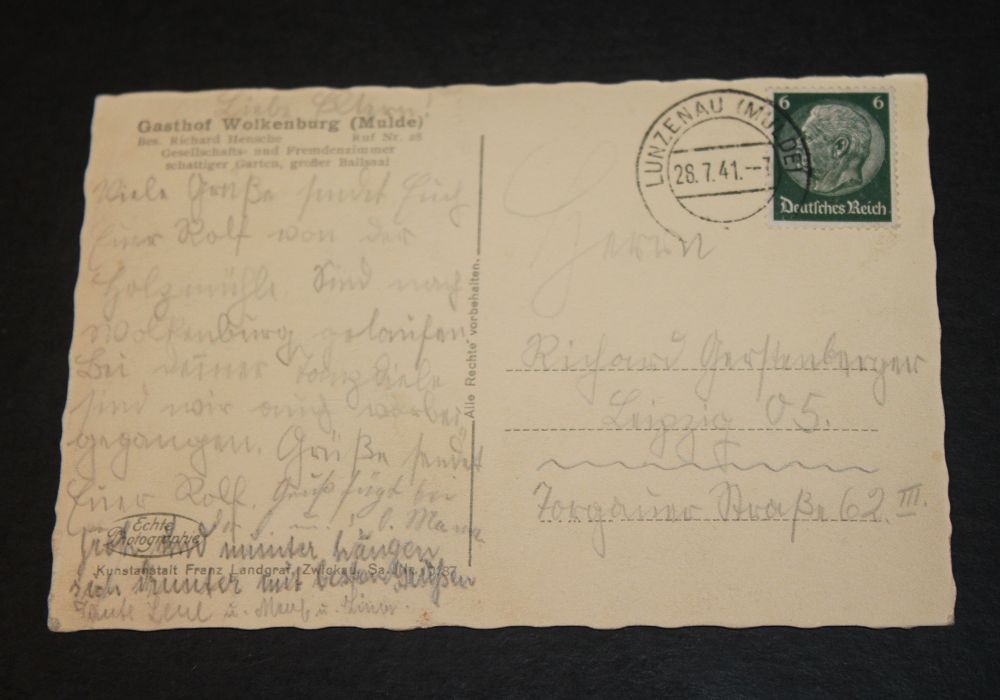 Liebe Eltern!
Gasthof Wolkenburg (Mulde)
Bes. Richard Hensche Ruf Nr. 28
Gesellschafts- und Fremdenzimmer
schattiger Garten, großer Ballsaal
Viele Grüße sendet Euch
Euer Rolf von der
Holzmühle. Sind nach
Wolkenburg gelaufen
Bei deiner Tanzdiele
sind wir auch vorbei
gegangen. Grüße sendet
Euer Rolf. Gruß fügt bei
O. Max
Echte
Photographie
und munter hängen
Kunstanstalt Franz Landgraf, Zwickau, Sa. Nr.
sich drunter mit besten Grüßen
Tante Leni u.
Alle Rechte vorbehalten.
LUNZENAU (MULDE)
28.7.41.
6 6
Deutsches Reich
Herrn
Richard Gerstenberger
Leipzig O5.
Torgauer Straße 62 III.